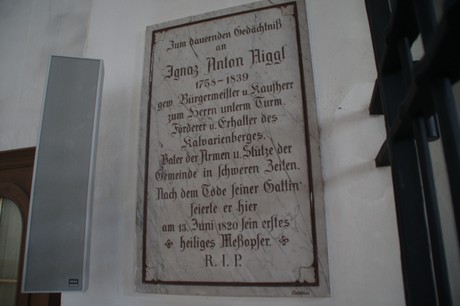 Zum dauernden Gedächtniß
an
Ignaz Anton Aiggl
1758-1839
gew. Bürgermeister u. Kaufherr
zum Herrn unterm Turm.
Förderer u. Erhalter des
Kalvarienberges.
Vater der Armen u. Stütze der
Gemeinde in schweren Zeiten.
Nach dem Tode seiner Gattin
feierte er hier
am 13. Juni 1820 sein erstes
heiliges Meßopfer.
R. I. P.